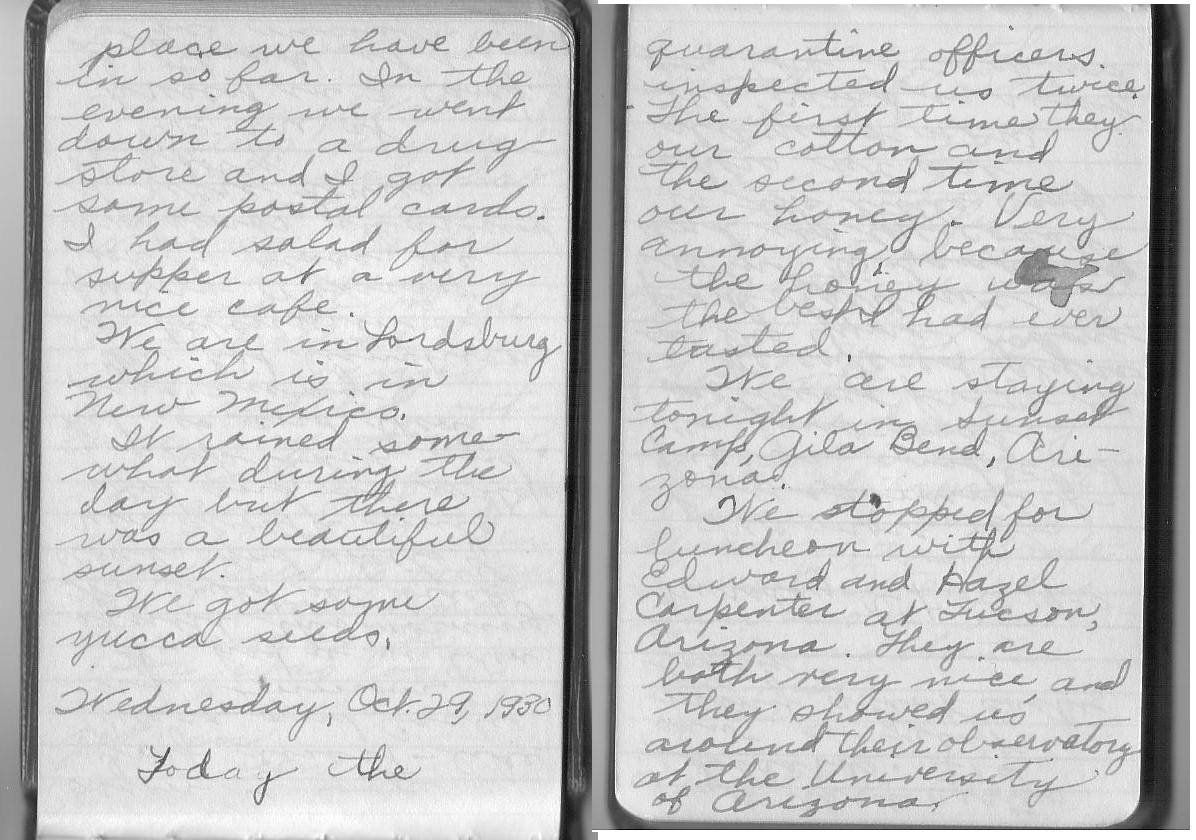 place we have been
in so far. In the
evening we went
down to a drug
store and I got
some postal cards.
I had salad for
supper at a very
nice cafe.
We are in Lordsburg
which is in
New Mexico.
It rained some-
what during the
day but there
was a beautiful
sunset.
We got some
yucca seeds.
Wednesday, Oct. 29, 1930
Today the
quarantine officers
inspected us twice.
The first time they
our cotton and
the second time
our honey. Very
annoying, because
the honey was
the best I had ever
tasted.
We are staying
tonight in Sunset
Camp, Gila Bend, Ari-
zona.
We stopped for
luncheon with
Edward and Hazel
Carpenter at Tucson,
Arizona. They are
both very nice, and
they showed us
around their observatory
at the University
of Arizona.